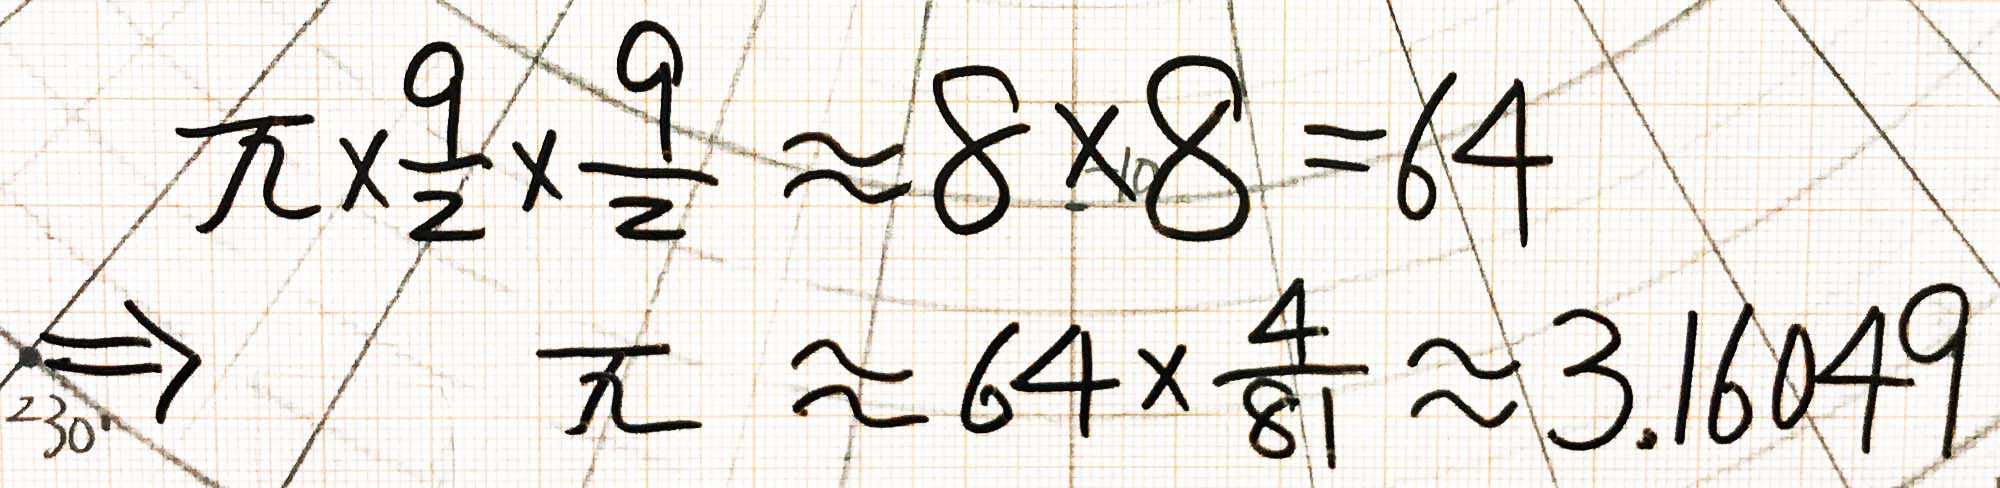 π × 9/2 × 9/2 ≈ 8 × 8 = 64
⇒ π ≈ 64 × 4/81 ≈ 3.16049
-10
-30°